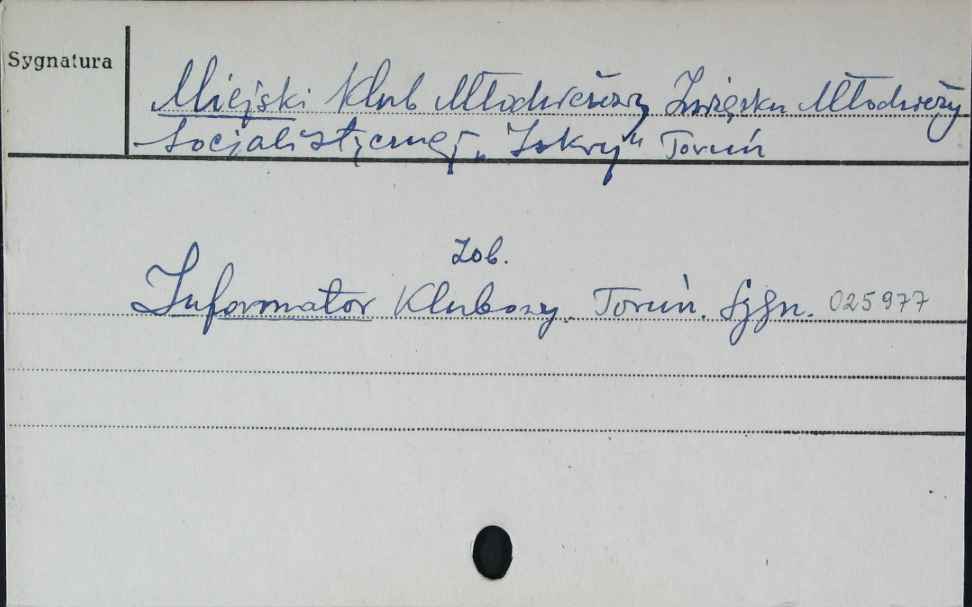 Sygnatura
Miejski Klub Młodzieżowy Związku Młodzieży
Socjalistycznej „Iskry" Toruń
Zob.
Informator Klubowy. Toruń. Sygn. 025977